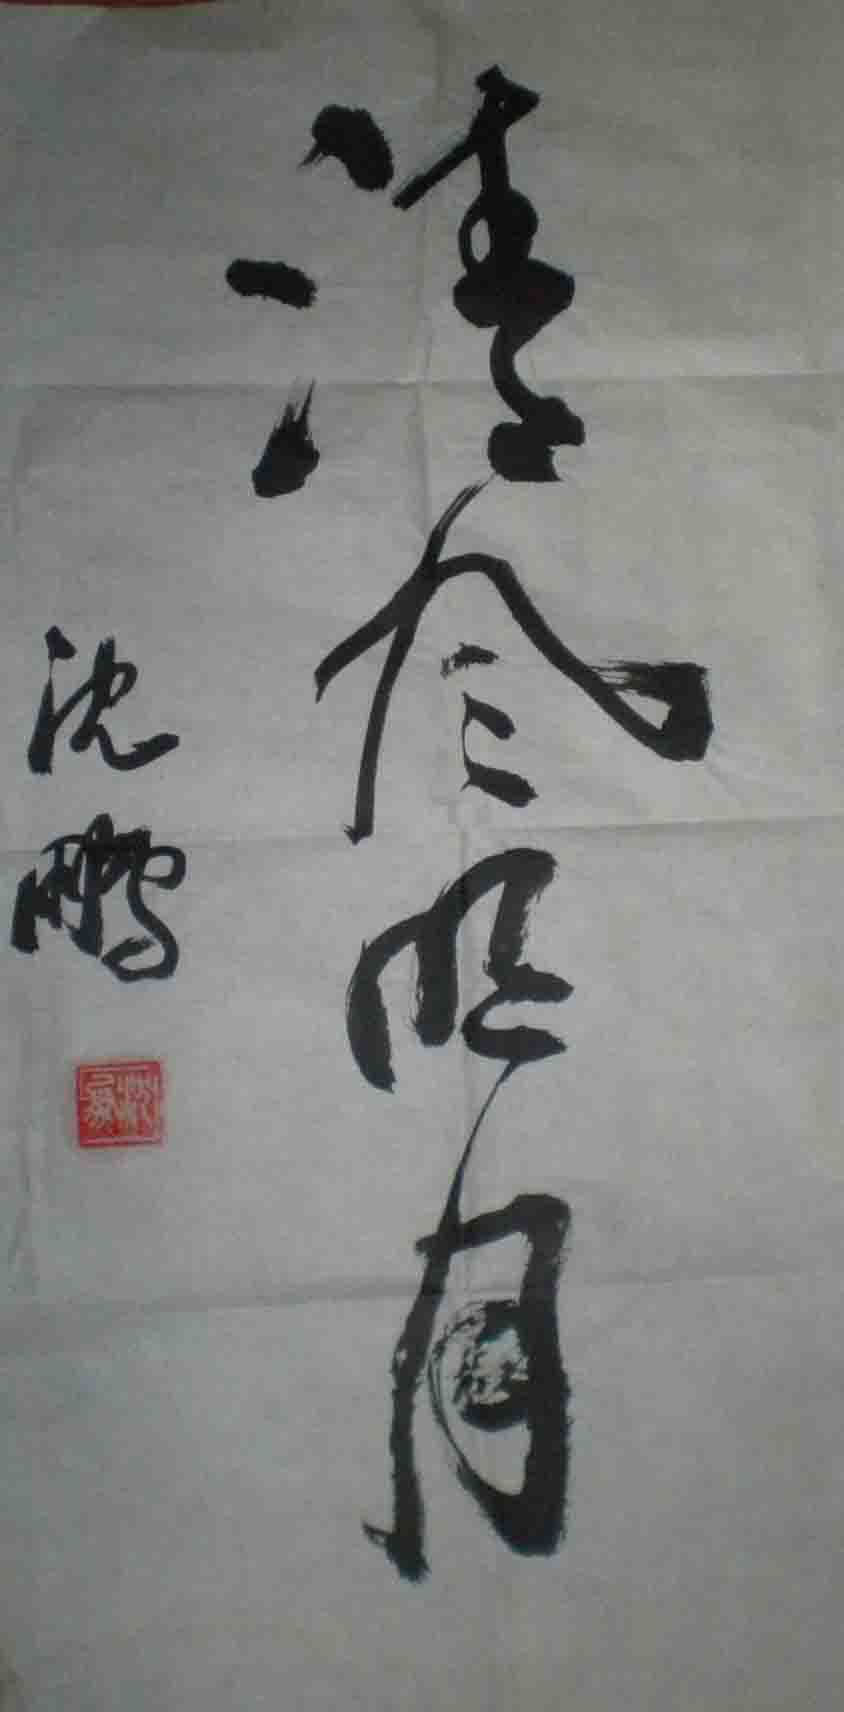 清风明月
沈鹏